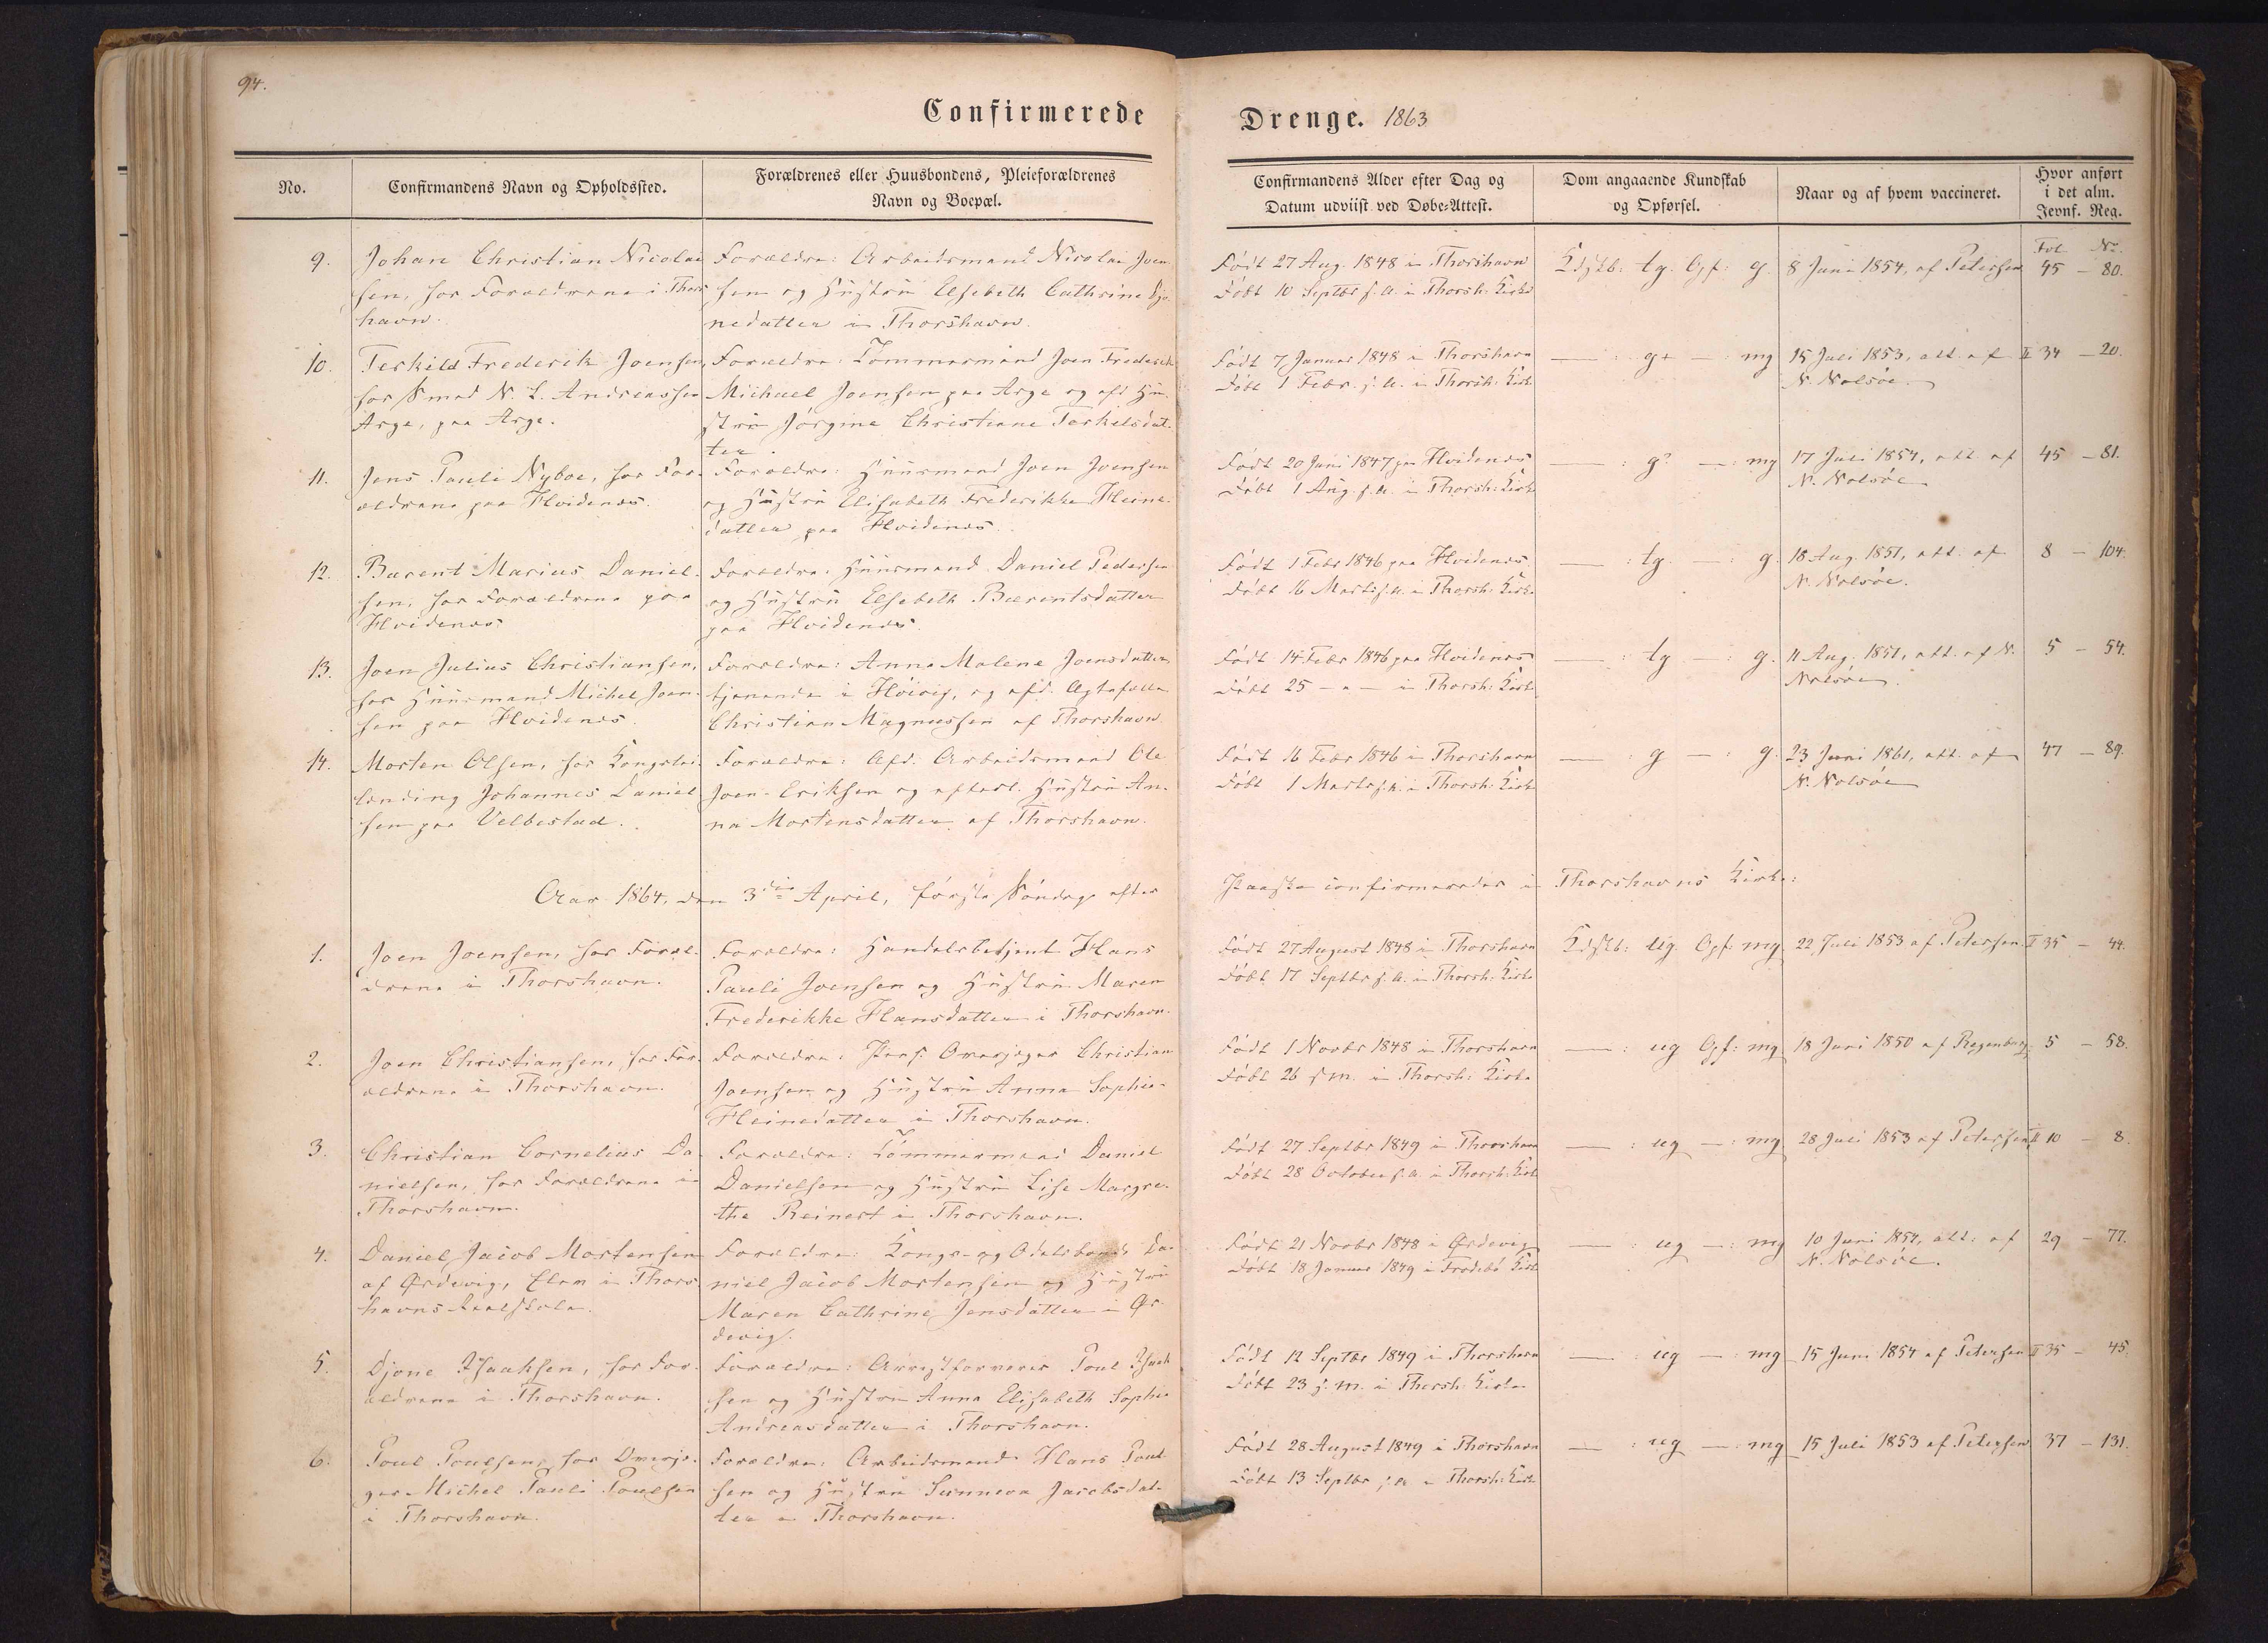 94.
Confirmerede Drenge. 1863
No.
Confirmandens Navn og Opholdssted.
Forældrenes eller Huusbondens, Pleieforældrenes
Navn og Boepæl.
Confirmandens Alder efter Dag og
Datum udviist ved Døbe-Attest.
Dom angaaende Kundskab
og Opførsel.
Naar og af hvem vaccineret.
Hvor anført
i det alm.
Jevnf. Reg.
Fol. No.
9.
Johan Christian Nicolai
sen, hos Forældrene i Thors
havn.
Forældre: Arbeidsmand Nicolai Joen
sen og Hustru Elsebeth Cathrine Djo
nedatter i Thorshavn.
Født 27 Aug. 1848 i Thorshavn
Døbt 10 Septbr s. A. i Thorsh. Kirke
Kdskb: tg. Opf: g.
8 Juni 1854, af Petersen
45 – 80.
10.
Terkild Frederik Joensen,
hos Smed N. L. Andreassen
Arge, paa Arge.
Forældre: Tømmermand Joen Frederik
Michael Joensen paa Arge og afd. Hu-
stru Jørgine Christiane Terkelsdat-
ter.
Født 7 Januar 1848 i Thorshavn
Døbt 1 Febr. s. A. i Thorsh. Kirke
— : g+ — : mg
15 Juli 1853, att. af
N. Nolsøe.
II 34 – 20.
11.
Jens Pauli Nyboe, hos For-
ældrene paa Hvidenæs.
Forældre: Huusmand Joen Joensen
og Hustru Elisabeth Frederikke Heine-
datter paa Hvidenæs.
Født 20 Juni 1847 paa Hvidenæs
Døbt 1 Aug. s. A. i Thorsh: Kirke
— : g? — : mg
17 Juli 1854, att. af
N. Nolsøe
45 – 81.
12.
Barent Marius Daniel-
sen, hos Forældrene paa
Hvidenæs
Forældre: Huusmand Daniel Pedersen
og Hustru Elsebeth Barentsdatter
paa Hvidenæs.
Født 1 Febr 1846 paa Hvidenæs.
Døbt 16 Marts s. A. i Thorsh: Kirke
— : tg. — : g.
18 Aug. 1851, att. af
N. Nolsøe.
8 – 104.
13.
Joen Julius Christiansen,
hos Huusmand Michel Joen-
sen paa Hvidenæs.
Forældre: Anna Malene Joensdatter
tjenende i Höivig, og afd. Ægtefælle
Christian Magnussen af Thorshavn
Født 14 Febr 1846 paa Hvidenæs
Døbt 25 – " – i Thorsh: Kirke
— : tg — : g.
11 Aug. 1851, att. af N.
Nolsøe.
5 – 54.
14.
Morten Olsen, hos Kongslei-
lending Johannes Daniel
sen paa Velbestad.
Forældre: Afd. Arbeidsmand Ole
Joen-Eriksen og efterl. Hustru An-
na Mortensdatter af Thorshavn.
Født 16 Febr 1846 i Thorshavn
Døbt 1 Marts s. A. i Thorsh: Kirke
— : g — : g.
23 Juni 1861, att. af
N. Nolsøe
47 – 89.
Aar 1864, den 3die April, første Søndag efter Paaske confirmeredes i Thorshavns Kirke:
1.
Joen Joensen, hos Foræl-
drene i Thorshavn.
Forældre: Handelsbetjent Hans
Pauli Joensen og Hustru Maren
Frederikke Hansdatter i Thorshavn.
Født 27 August 1848 i Thorshavn
Døbt 17 Septbr s. A. i Thorsh: Kirke
Kdskb: ug. Opf: mg
22 Juli 1853 af Petersen
II 35 – 44.
2.
Joen Christiansen, hos For-
ældrene i Thorshavn.
Forældre: Overjæger Christian
Joensen og Hustru Anna Sophie
Heinedatter i Thorshavn.
Født 1 Novbr 1848 i Thorshavn
Døbt 26 s. m. i Thorsh: Kirke
— : ug Opf: mg.
18 Juni 1850 af Regenburg
5 – 58.
3.
Christian Cornelius Da-
nielsen, hos Forældrene i
Thorshavn.
Forældre: Tömmermand Daniel
Danielsen og Hustru Lise Margre-
the Reinert i Thorshavn.
Født 27 Septbr 1849 i Thorshavn
Døbt 28 October s. A. i Thorsh: Kirke
— : ug — : mg
28 Juli 1853 af Petersen
II 10 – 8.
4.
Daniel Jacob Mortensen
af Ørdevig, Elev i Thors
havns Realskole.
Forældre: Kongs- og Odelsbonde Da-
niel Jacob Mortensen og Hustru
Maren Cathrine Jensdatter i Ør-
devig.
Født 21 Novbr 1848 i Ørdevig
Døbt 18 Januar 1849 i Frodebø Kirke
— : ug — : mg
10 Juni 1854, att: af
N. Nolsøe.
29 – 77.
5.
Djone Isaaksen, hos For-
ældrene i Thorshavn.
Forældre: Arrestforvarer Poul Isak
sen og Hustru Anna Elisabeth Sophie
Andreasdatter i Thorshavn.
Født 12 Septbr 1849 i Thorshavn
Døbt 23 s. m. i Thorsh. Kirke
— : ug — : mg
15 Juni 1854 af Petersen
II 35 – 45.
6.
Poul Poulsen, hos Overjæ-
ger Michel Pauli Poulsen
i Thorshavn.
Forældre: Arbeidsmand Hans Poul-
sen og Hustru Sunneva Jacobsdat-
ter i Thorshavn.
Født 28 August 1849 i Thorshavn
Døbt 13 Septbr s. A. i Thorsh: Kirke
— : ug — : mg
15 Juli 1853 af Petersen
37 – 131.